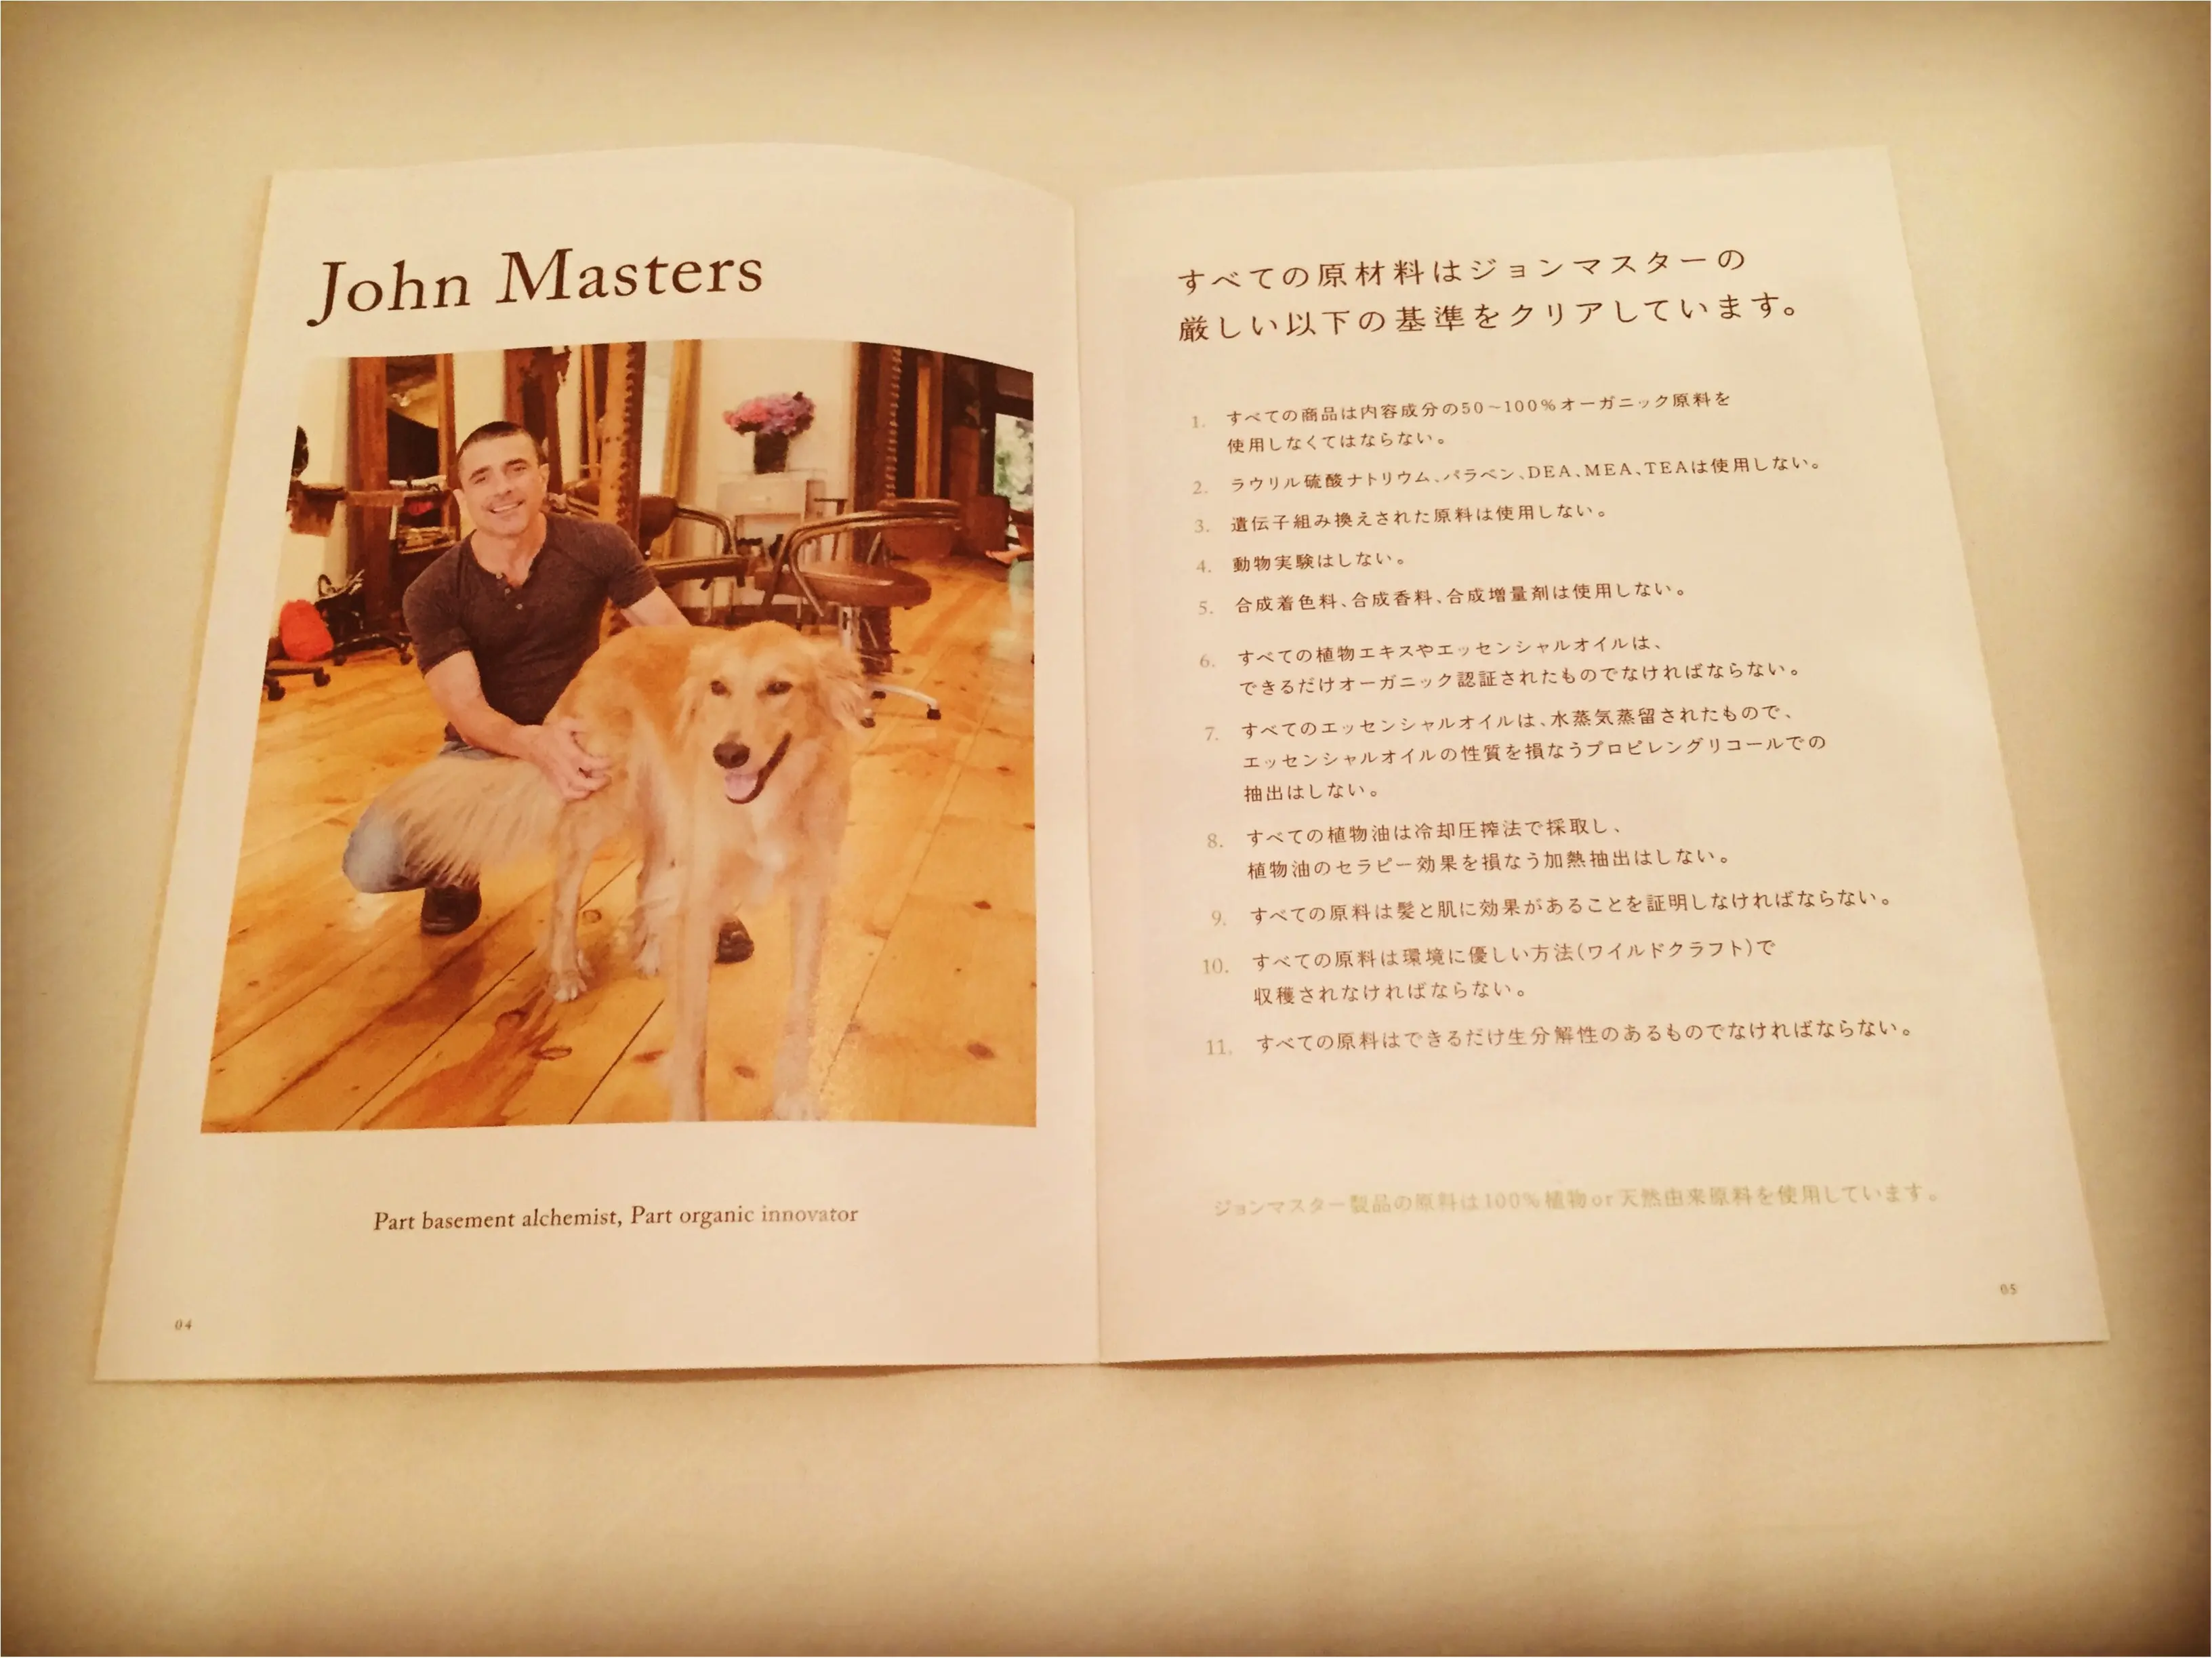 John Masters
Part basement alchemist, Part organic innovator
04
すべての原材料はジョンマスターの
厳しい以下の基準をクリアしています。
1. すべての商品は内容成分の50~100%オーガニック原料を
使用しなくてはならない。
2. ラウリル硫酸ナトリウム、パラベン、DEA、MEA、TEAは使用しない。
3. 遺伝子組み換えされた原料は使用しない。
4. 動物実験はしない。
5. 合成着色料、合成香料、合成増量剤は使用しない。
6. すべての植物エキスやエッセンシャルオイルは、
できるだけオーガニック認証されたものでなければならない。
7. すべてのエッセンシャルオイルは、水蒸気蒸留されたもので、
エッセンシャルオイルの性質を損なうプロピレングリコールでの
抽出はしない。
8. すべての植物油は冷却圧搾法で採取し、
植物油のセラピー効果を損なう加熱抽出はしない。
9. すべての原料は髪と肌に効果があることを証明しなければならない。
10. すべての原料は環境に優しい方法(ワイルドクラフト)で
収穫されなければならない。
11. すべての原料はできるだけ生分解性のあるものでなければならない。
ジョンマスター製品の原料は100%植物or天然由来原料を使用しています。
05